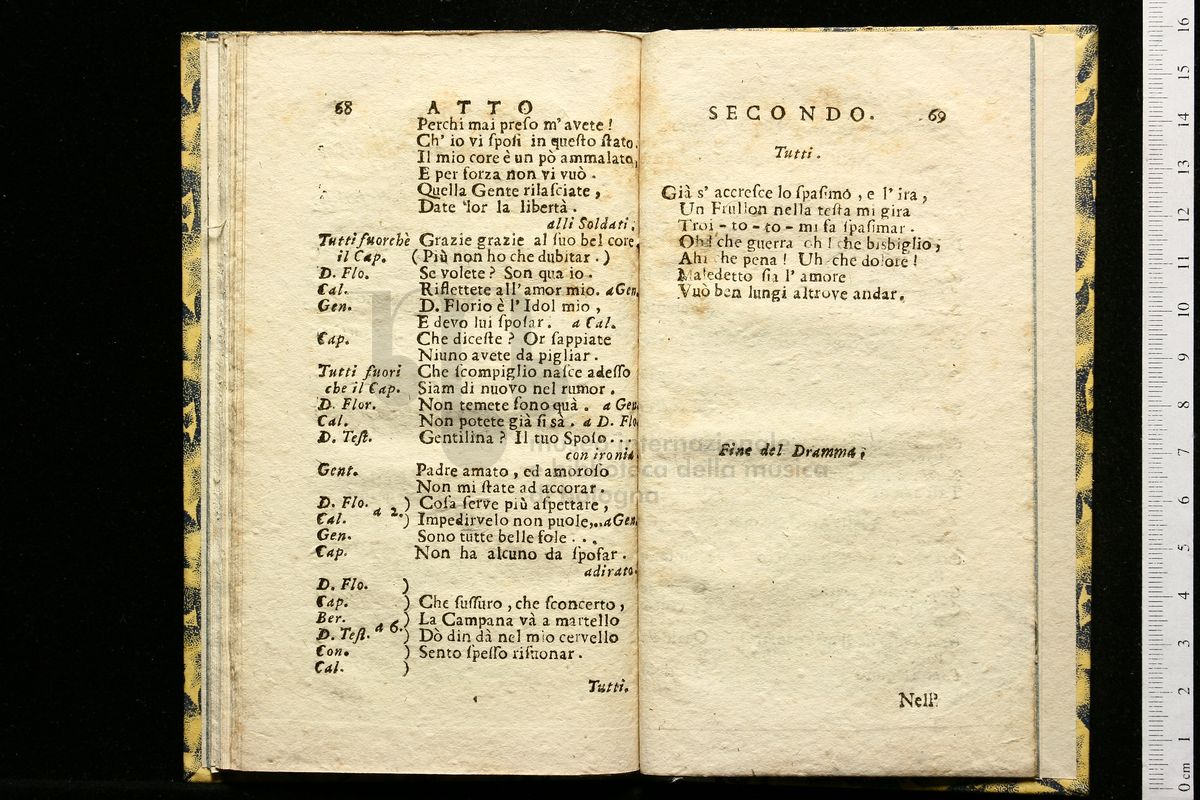 68 ATTO
Perchi mai preſo m' avete !
Ch' io vi ſpoſi in queſto ſtato.
Il mio core è un pò ammalato,
E per forza non vi vuò .
Quella Gente rilaſciate ,
Date 'lor la libertà .
alli Soldati;
Tutti fuorchè Grazie grazie al ſuo bel core,
il Cap. ( Più non ho che dubitar . )
D. Flo. Se volete ? Son qua io .
Cal. Riflettete all' amor mio. a Gen.
Gen. D. Florio è l' Idol mio ,
E devo lui ſpoſar. a Cal.
Cap. Che diceſte ? Or ſappiate
Niuno avete da pigliar .
Tutti fuori Che ſcompiglio naſce adeſſo
che il Cap. Siam di nuovo nel rumor .
D. Flor. Non temete ſono quà . a Gen.
Cal. Non potete già ſi sà . a D. Flo
D. Teſt. Gentilina ? Il tuo Spoſo . . .
con ironia
Gent. Padre amato , ed amoroſo
Non mi ſtate ad accorar .
D. Flo. ) Coſa ſerve più aſpettare ,
a 2.
Cal. ) Impedirvelo non puole,..a Gen.
Gen. Sono tutte belle fole . . .
Cap. Non ha alcuno da ſpoſar .
adirato.
D. Flo. )
Cap. ) Che ſuſſuro , che ſconcerto ,
Ber. ) La Campana và a martello
a 6.
D. Teſt. ) Dò din dà nel mio cervello
Con. ) Sento ſpeſſo riſuonar .
Cal. )
Tutti.
SECONDO. 69
Tutti .
Già s' accreſce lo ſpaſimo , e l' ira ,
Un Frullon nella teſta mi gira
Troi - to - to - mi fa ſpaſimar .
Ohi che guerra oh ! che bisbiglio ,
Ahi che pena ! Uh che dolore !
Maledetto ſia l' amore
Vuò ben lungi altrove andar .
Fine del Dramma ;
Nell'
museo internazionale
e biblioteca della musica
di bologna
0 cm 1 2 3 4 5 6 7 8 9 10 11 12 13 14 15 16